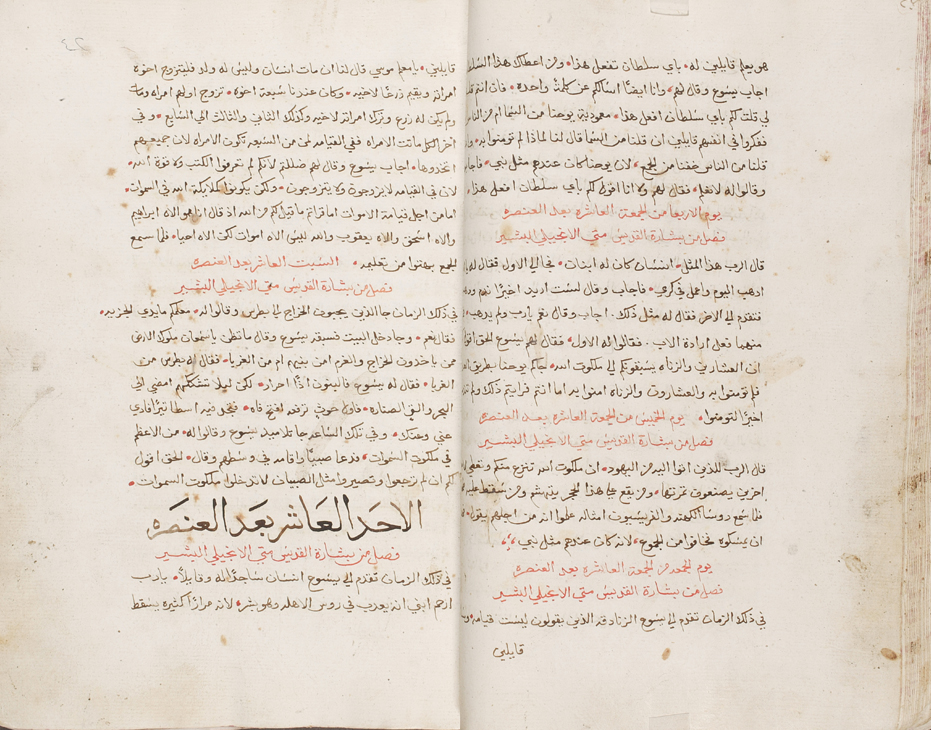 هو يعلم قايلين له باي سلطان تفعل هذا ومن اعطاك هذا السلطان
اجاب يسوع وقال لهم وانا ايضًا اسالكم عن كلمة واحده فان انتم
لي قلت لكم باي سلطان افعل هذا معمودية يوحنا من السما ام من الناس
ففكروا في انفسهم قايلين ان قلنا من السما قال لنا لماذا لم تومنوا به
قلنا من الناس خفنا من الجمع لان يوحنا كان عندهم مثل نبي
وقالوا له لا نعلم فقال لهم ولا انا اقول لكم باي سلطان افعل هذا
يوم الاربعا من الجمعة العاشره بعد العنصره
فصل من بشارة القديس متي الانجيلي البشير
قال الرب هذا المثل انسان كان له ابنان فجا الي الاول فقال له
اذهب اليوم واعمل في كرمي فاجاب وقال لست اريد اخيرًا ندم
فتقدم الي الاخر فقال له مثل ذلك اجاب وقال نعم يارب ولم يذهب
منهما فعل ارادة الاب فقالوا له الاول فقال لهم يسوع الحق اقول
ان العشارين والزناه يسبقونكم الي ملكوت الله جاكم يوحنا بطريق
فلم تومنوا به والعشارون والزناه امنوا به اما انتم فرايتم ذلك ولم
اخيرًا لتومنوا يوم الخميس من الجمعة العاشره بعد العنصره
فصل من بشارة القديس متي الانجيلي البشير
قال الرب للذين اتوا اليه من اليهود ان ملكوت الله تنزع منكم وتعطي
اخرين يصنعون ثمرتها ومن يقع علي هذا الحجر يتهشم ومن سقط عليه
فلما سمع روسا الكهنه والفريسيون امثاله علموا انه من اجلهم يقول
ان يمسكوه فخافوا من الجموع لانه كان عندهم مثل نبي
يوم الجمعه من الجمعة العاشره بعد العنصره
فصل من بشارة القديس متي الانجيلي البشير
في ذلك الزمان تقدم الي يسوع الزنادقه الذين يقولون ليست قيامه
قايلين
قايلين يا معلم موسي قال لنا ان مات انسان وليس له ولد فليتزوج اخوه
امراته ويقيم زرعًا لاخيه وكان عندنا سبعة اخوه تزوج اولهم امراه ومات
ولم يكن له زرع وترك امراته لاخيه وكذلك الثاني والثالث الي السابع وفي
اخر الكل ماتت الامراه ففي القيامه لمن من السبعه تكون الامراه لان جميعهم
اتخذوها اجاب يسوع وقال لهم ضللتم لانكم لم تعرفوا الكتب ولا قوة الله
لان في القيامه لا يزوجون ولا يتزوجون ولكن يكونون كملايكة الله في السموات
اما من اجل قيامة الاموات اما قراتم ما قيل لكم من الله اذ قال انا هو الاه ابراهيم
والاه اسحق والاه يعقوب والله ليس الاه اموات لكن الاه احيا فلما سمع
الجمع بهتوا من تعليمه السبت العاشر بعد العنصره
فصل من بشارة القديس متي الانجيلي البشير
في ذلك الزمان جا الذين يجبون الخراج الي بطرس وقالوا له معلمكم ما يودي الجزيه
فقال نعم وجا دخل البيت فسبقه يسوع وقال ما تظن يا سمعان ملوك الارض
ممن ياخذون الخراج والغرم امن بنيهم ام من الغربا فقال له بطرس من
الغربا فقال له يسوع فالبنون اذًا احرار لكن ليلا نشككهم امضي الي
البحر والق الصناره فاول حوت ترفعه افتح فاه فتجد فيه اسطاتيرًا فادي
عني وعنك وفي تلك الساعه جا تلاميذ يسوع وقالوا له من الاعظم
في ملكوت السموات فدعا صبيًا واقامه في وسطهم وقال الحق اقول
لكم ان لم ترجعوا وتصيروا مثل الصبيان لا تدخلوا ملكوت السموات
الاحد العاشر بعد العنصره
فصل من بشارة القديس متي الانجيلي البشير
في ذلك الزمان تقدم الي يسوع انسان ساجدًا له وقايلًا يارب
ارحم ابني انه يعذب في روس الاهله وهو بشر لانه مرارًا كثيره يسقط